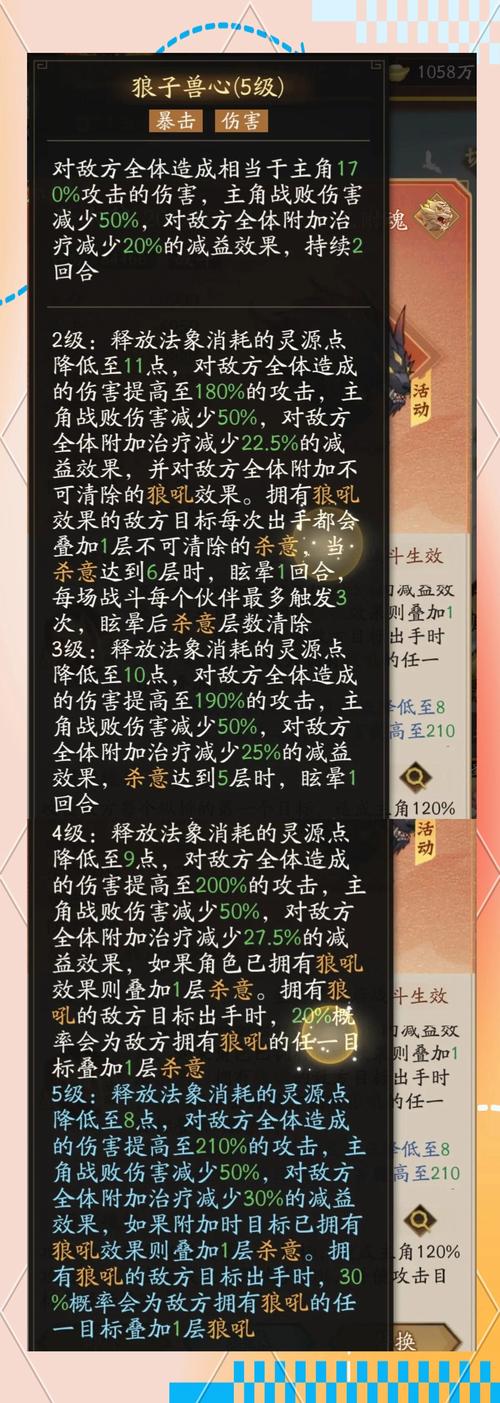 狼子兽心(5级)
暴击 伤害
1058万
对敌方全体造成相当于主角17
0%攻击的伤害，主角战败伤害
减少50%，对敌方全体附加治
疗减少20%的减益效果，持续2
回合
魂
活动
2级：释放法象消耗的灵源点
降低至11点，对敌方全体造成
的伤害提高至180%的攻击，主
角战败伤害减少50%，对敌方
全体附加治疗减少22.5%的减
益效果，并对敌方全体附加不
可清除的狼吼效果。拥有狼吼
效果的敌方目标每次出手都会
叠加1层不可清除的杀意，当
杀意达到6层时，眩晕1回合，
每场战斗每个伙伴最多触发3
次，眩晕后杀意层数清除
3级：释放法象消耗的灵源点
降低至10点，对敌方全体造成
的伤害提高至190%的攻击，主
角战败伤害减少50%，对敌方
全体附加治疗减少25%的减益
效果，杀意达到5层时，眩晕1
回合
斗生效
减益效
则叠加1
标出手时
的任一
降低至8
高至210
主角120%
4级：释放法象消耗的灵源点
降低至9点，对敌方全体造成
的伤害提高至200%的攻击，主
角战败伤害减少50%，对敌方
全体附加治疗减少27.5%的减
益效果，如果角色已拥有狼吼
效果则叠加1层杀意。拥有狼
吼的敌方目标出手时，20%概
率会为敌方拥有狼吼的任一目
标叠加1层杀意
5级：释放法象消耗的灵源点
降低至8点，对敌方全体造成
的伤害提高至210%的攻击，主
角战败伤害减少50%，对敌方
全体附加治疗减少30%的减益
效果，如果附加时目标已拥有
狼吼效果则叠加1层杀意。拥
有狼吼的敌方目标出手时，30
%概率会为敌方拥有狼吼的任
一目标叠加1层狼吼
活动
斗生效
减益效
则叠加1
标出手时
的任一
低至8
高至210
主角120%
攻击目
换